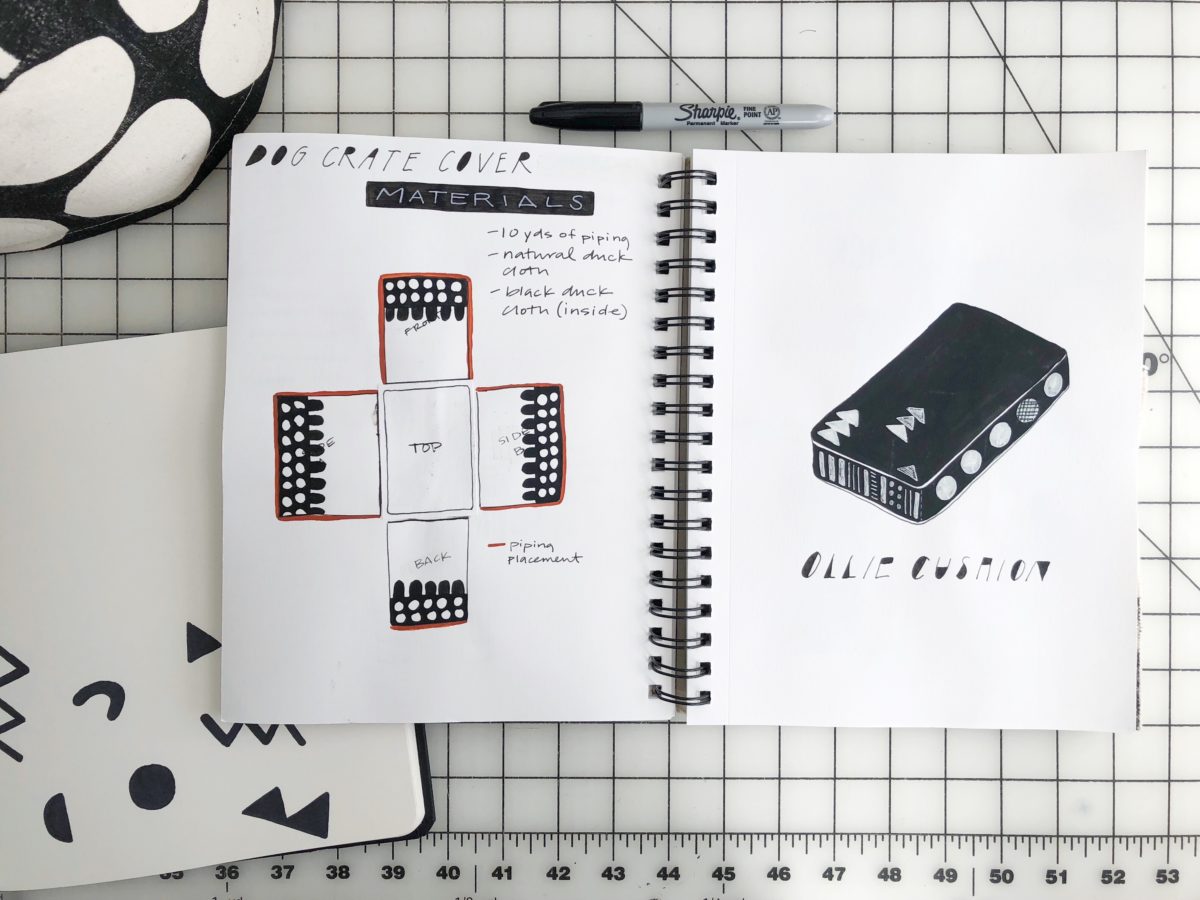 Sharpie
Permanent Marker
FINE
POINT
AP
DOG CRATE COVER
MATERIALS
-10 yds of piping
-natural duck
cloth
-black duck
cloth (inside)
TOP
BACK
piping
placement
OLLIE CUSHION
0°
36 37 38 39 40 41 42 43 44 45 46 47 48 49 50 51 52 53